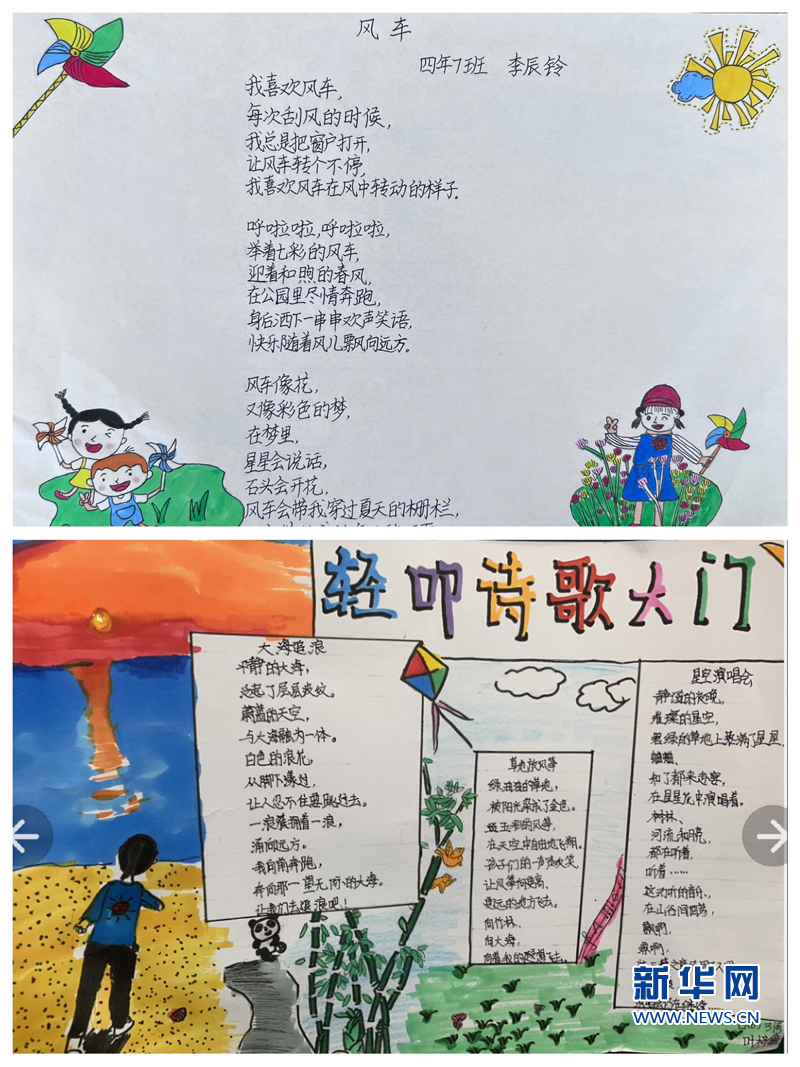 风车
四年7班 李辰铃
我喜欢风车,
每次刮风的时候,
我总是把窗户打开,
让风车转个不停,
我喜欢风车在风中转动的样子.
呼啦啦,呼啦啦,
举着七彩的风车,
迎着和煦的春风,
在公园里尽情奔跑,
身后洒下一串串欢声笑语,
快乐随着风儿飘向远方.
风车像花,
又像彩色的梦,
在梦里,
星星会说话,
石头会开花,
风车会带我穿过夏天的栅栏,
轻叩诗歌大门
大海追浪
平静的大海,
泛起了层层波纹。
蔚蓝的天空,
与大海融为一体。
白色的浪花,
从脚下漾过,
让人忍不住要跳过去。
一浪簇拥着一浪,
涌向远方。
我向前奔跑,
奔向那一望无际的大海。
让我们去追浪吧!
草地放风筝
绿油油的草地,
被阳光染成了金色。
五颜的风筝,
在天空中自由地飞翔。
孩子们的一声声欢笑
让风筝向更高、
更远的地方飞去。
向竹林、
向大海,
向着我的理想飞去。
星空演唱会
静谧的夜晚,
璀璨的星空,
碧绿的草地上装满了星星、
蝴蝶、
和了都来做客,
在星星花中演唱着。
树林、
河流和月亮,
都在听着,
听着……
这动听的音乐,
在山谷间回荡,
飘啊,
飘啊,
新华网
WWW.NEWS.CN